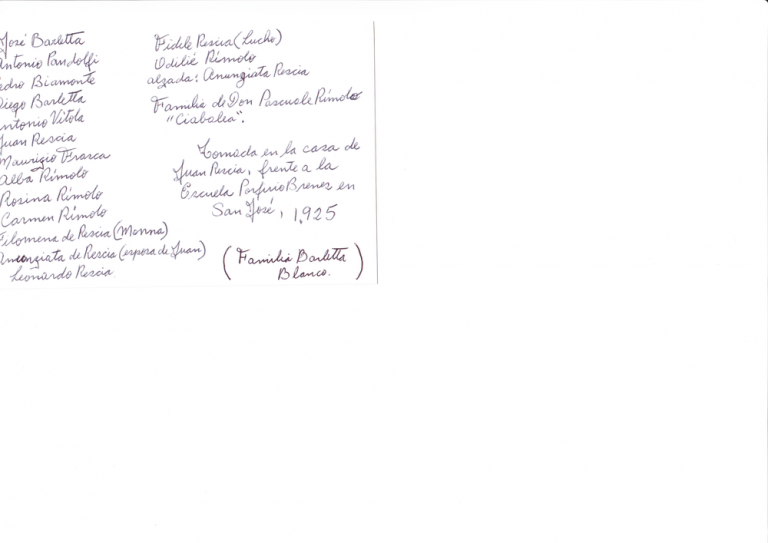 José Barletta
Antonio Pandolfi
Pedro Biamonte
Diego Barletta
Antonio Vitola
Juan Rescia
Maurizio Frasca
Alba Rímolo
Rosina Rímolo
Carmen Rímolo
Filomena de Rescia (Manna)
Anunziata de Rescia (esposa de Juan)
Leonardo Rescia
Fidele Rescia (Lucho)
Odilié Rímolo
alzada: Anunziata Rescia
Familia de Don Pascuale Rímolo
"Ciabalea".
Tomada en la casa de
Juan Rescia, frente a la
Escuela Porfirio Brenes en
San José, 1,925
(Familia Barletta
Blanco.)